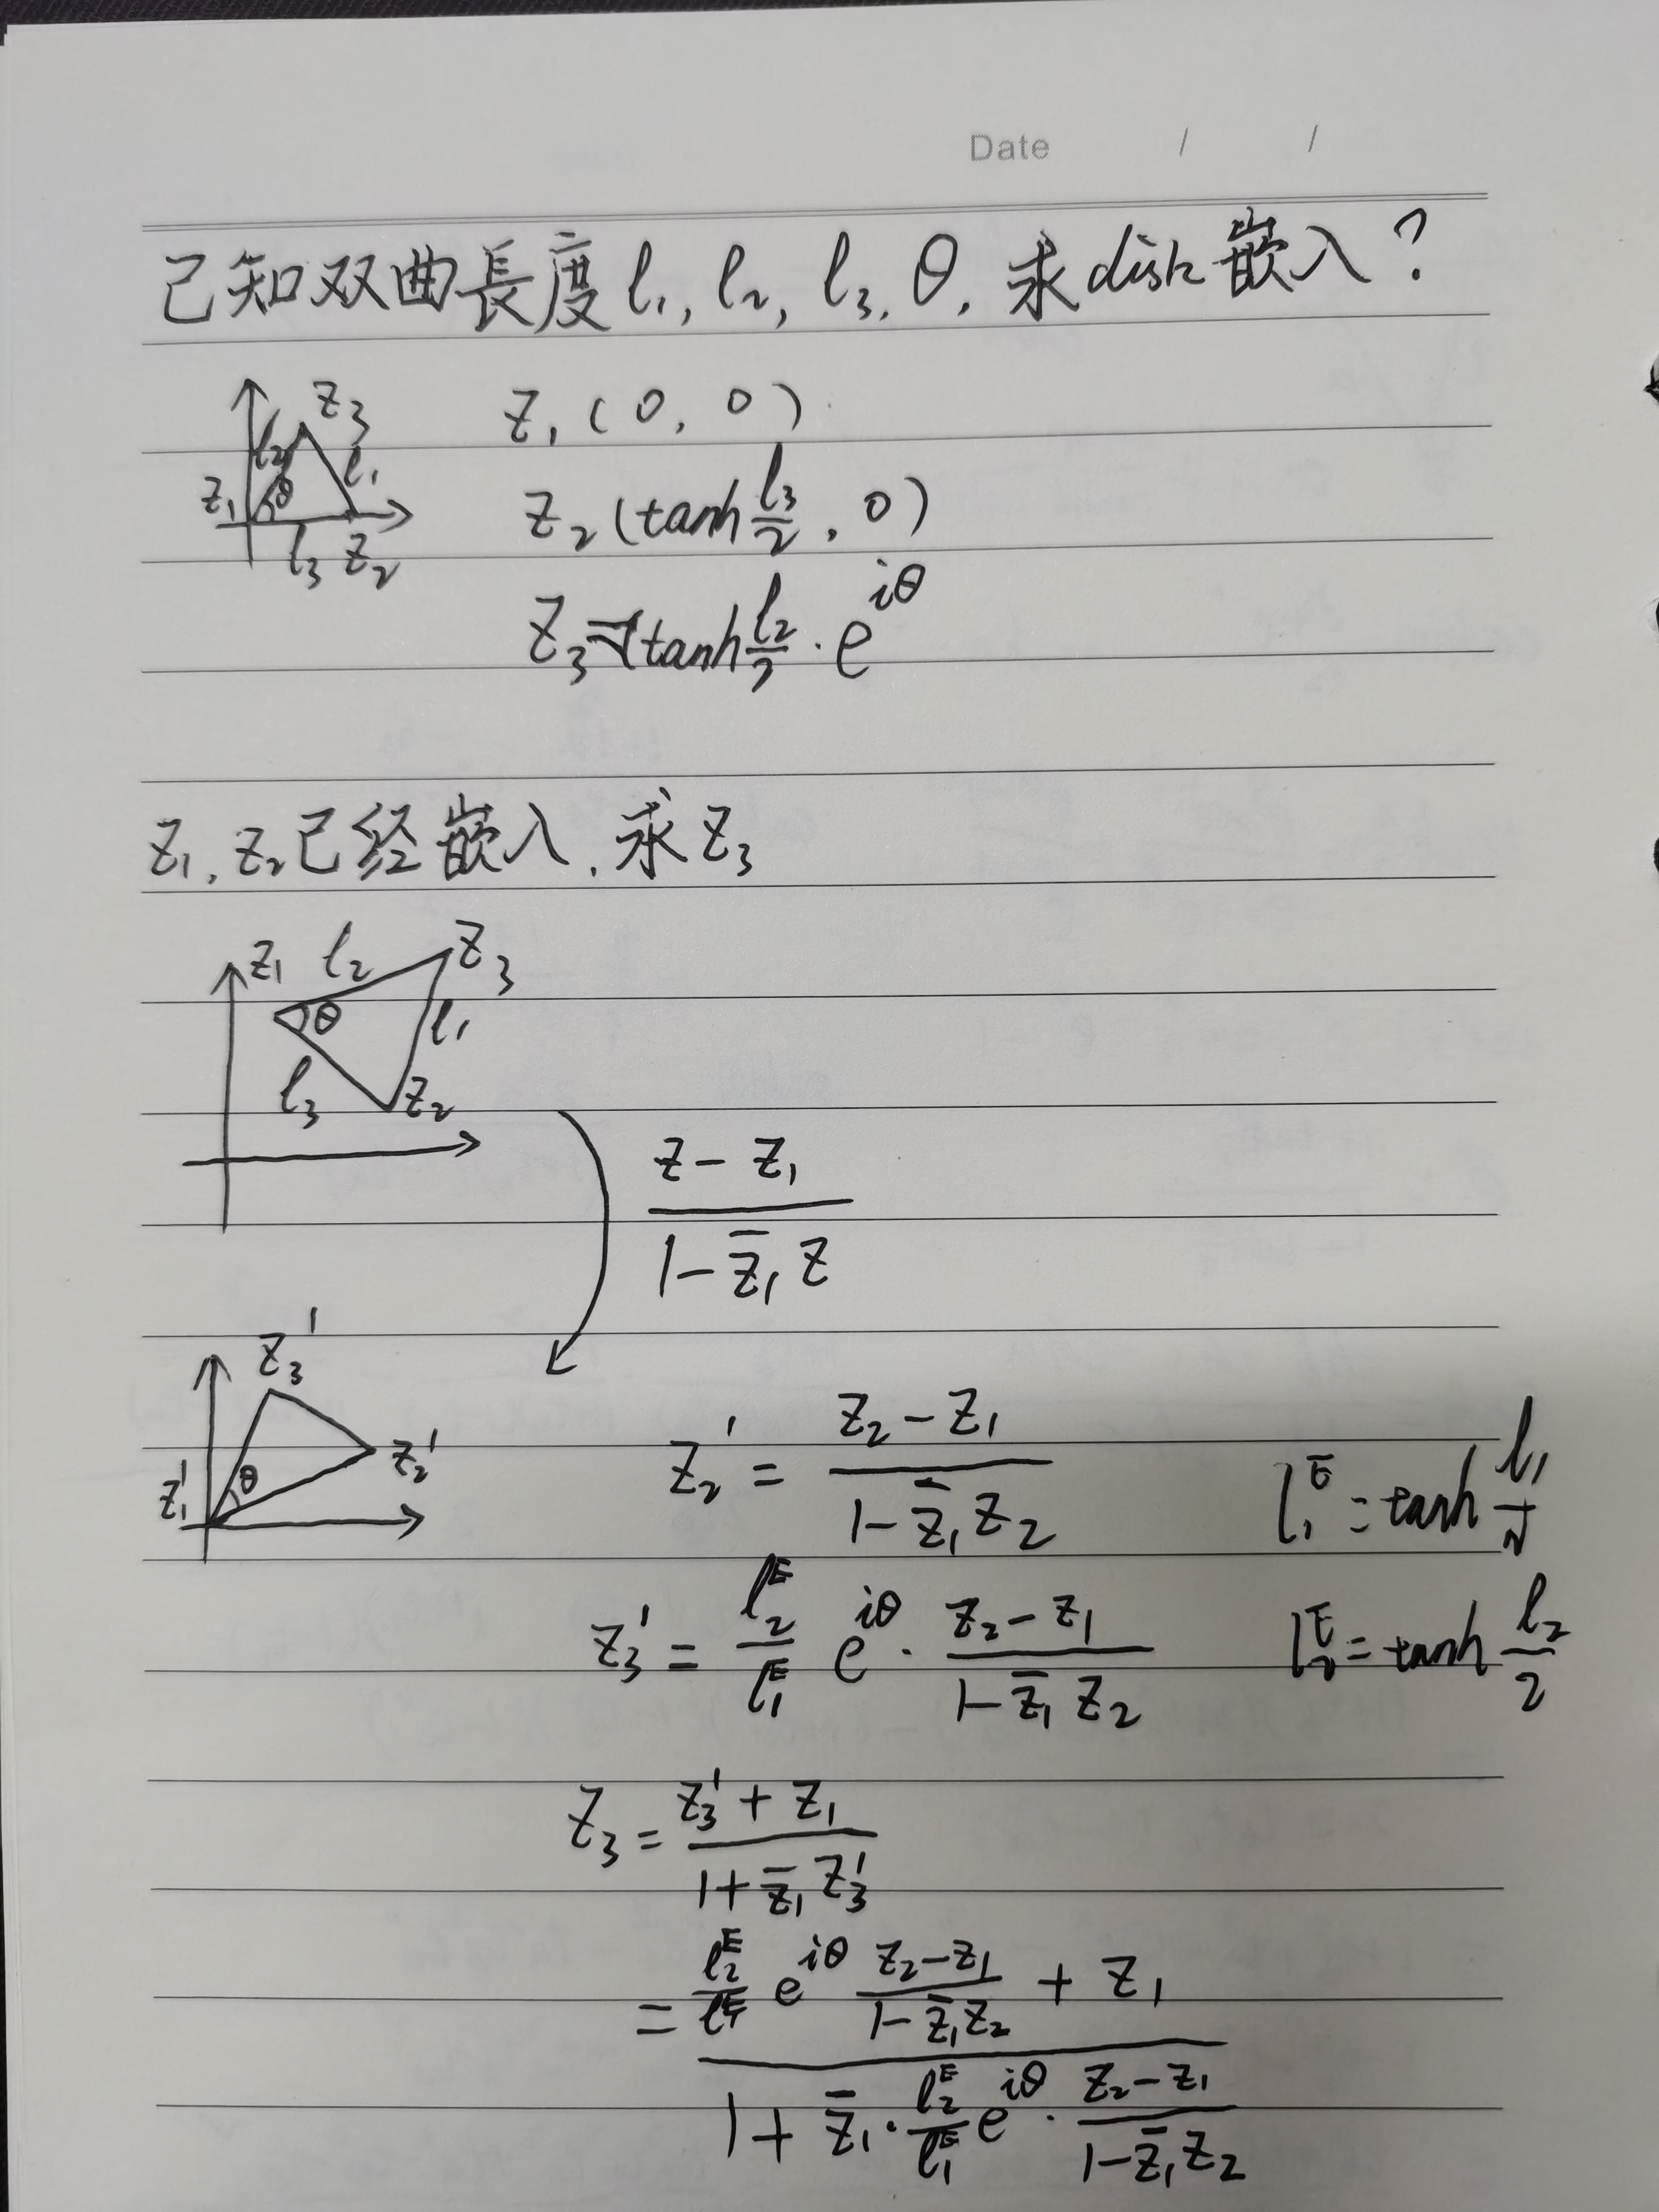 Date / /
已知双曲長度 l₁, l₂, l₃, θ, 求disk嵌入?
z₃
l₂ l₁
z₁ θ
l₃ z₂
z₁(0, 0)
z₂(tanh l₃/2, 0)
z₃ = tanh l₂/2 · e^{iθ}
z₁, z₂已经嵌入, 求z₃
z₁ l₂ z₃
θ l₁
l₃ z₂
(z − z₁)/(1 − z̄₁z)
z₃'
θ z₂'
z₁'
z₂' = (z₂ − z₁)/(1 − z̄₁z₂) l₁ᴱ = tanh l₁/2
z₃' = l₂ᴱ/l₁ᴱ e^{iθ} · (z₂ − z₁)/(1 − z̄₁z₂) l₂ᴱ = tanh l₂/2
z₃ = (z₃' + z₁)/(1 + z̄₁z₃')
= (l₂ᴱ/l₁ᴱ e^{iθ} (z₂ − z₁)/(1 − z̄₁z₂) + z₁)/(1 + z̄₁ · l₂ᴱ/l₁ᴱ e^{iθ} · (z₂ − z₁)/(1 − z̄₁z₂))